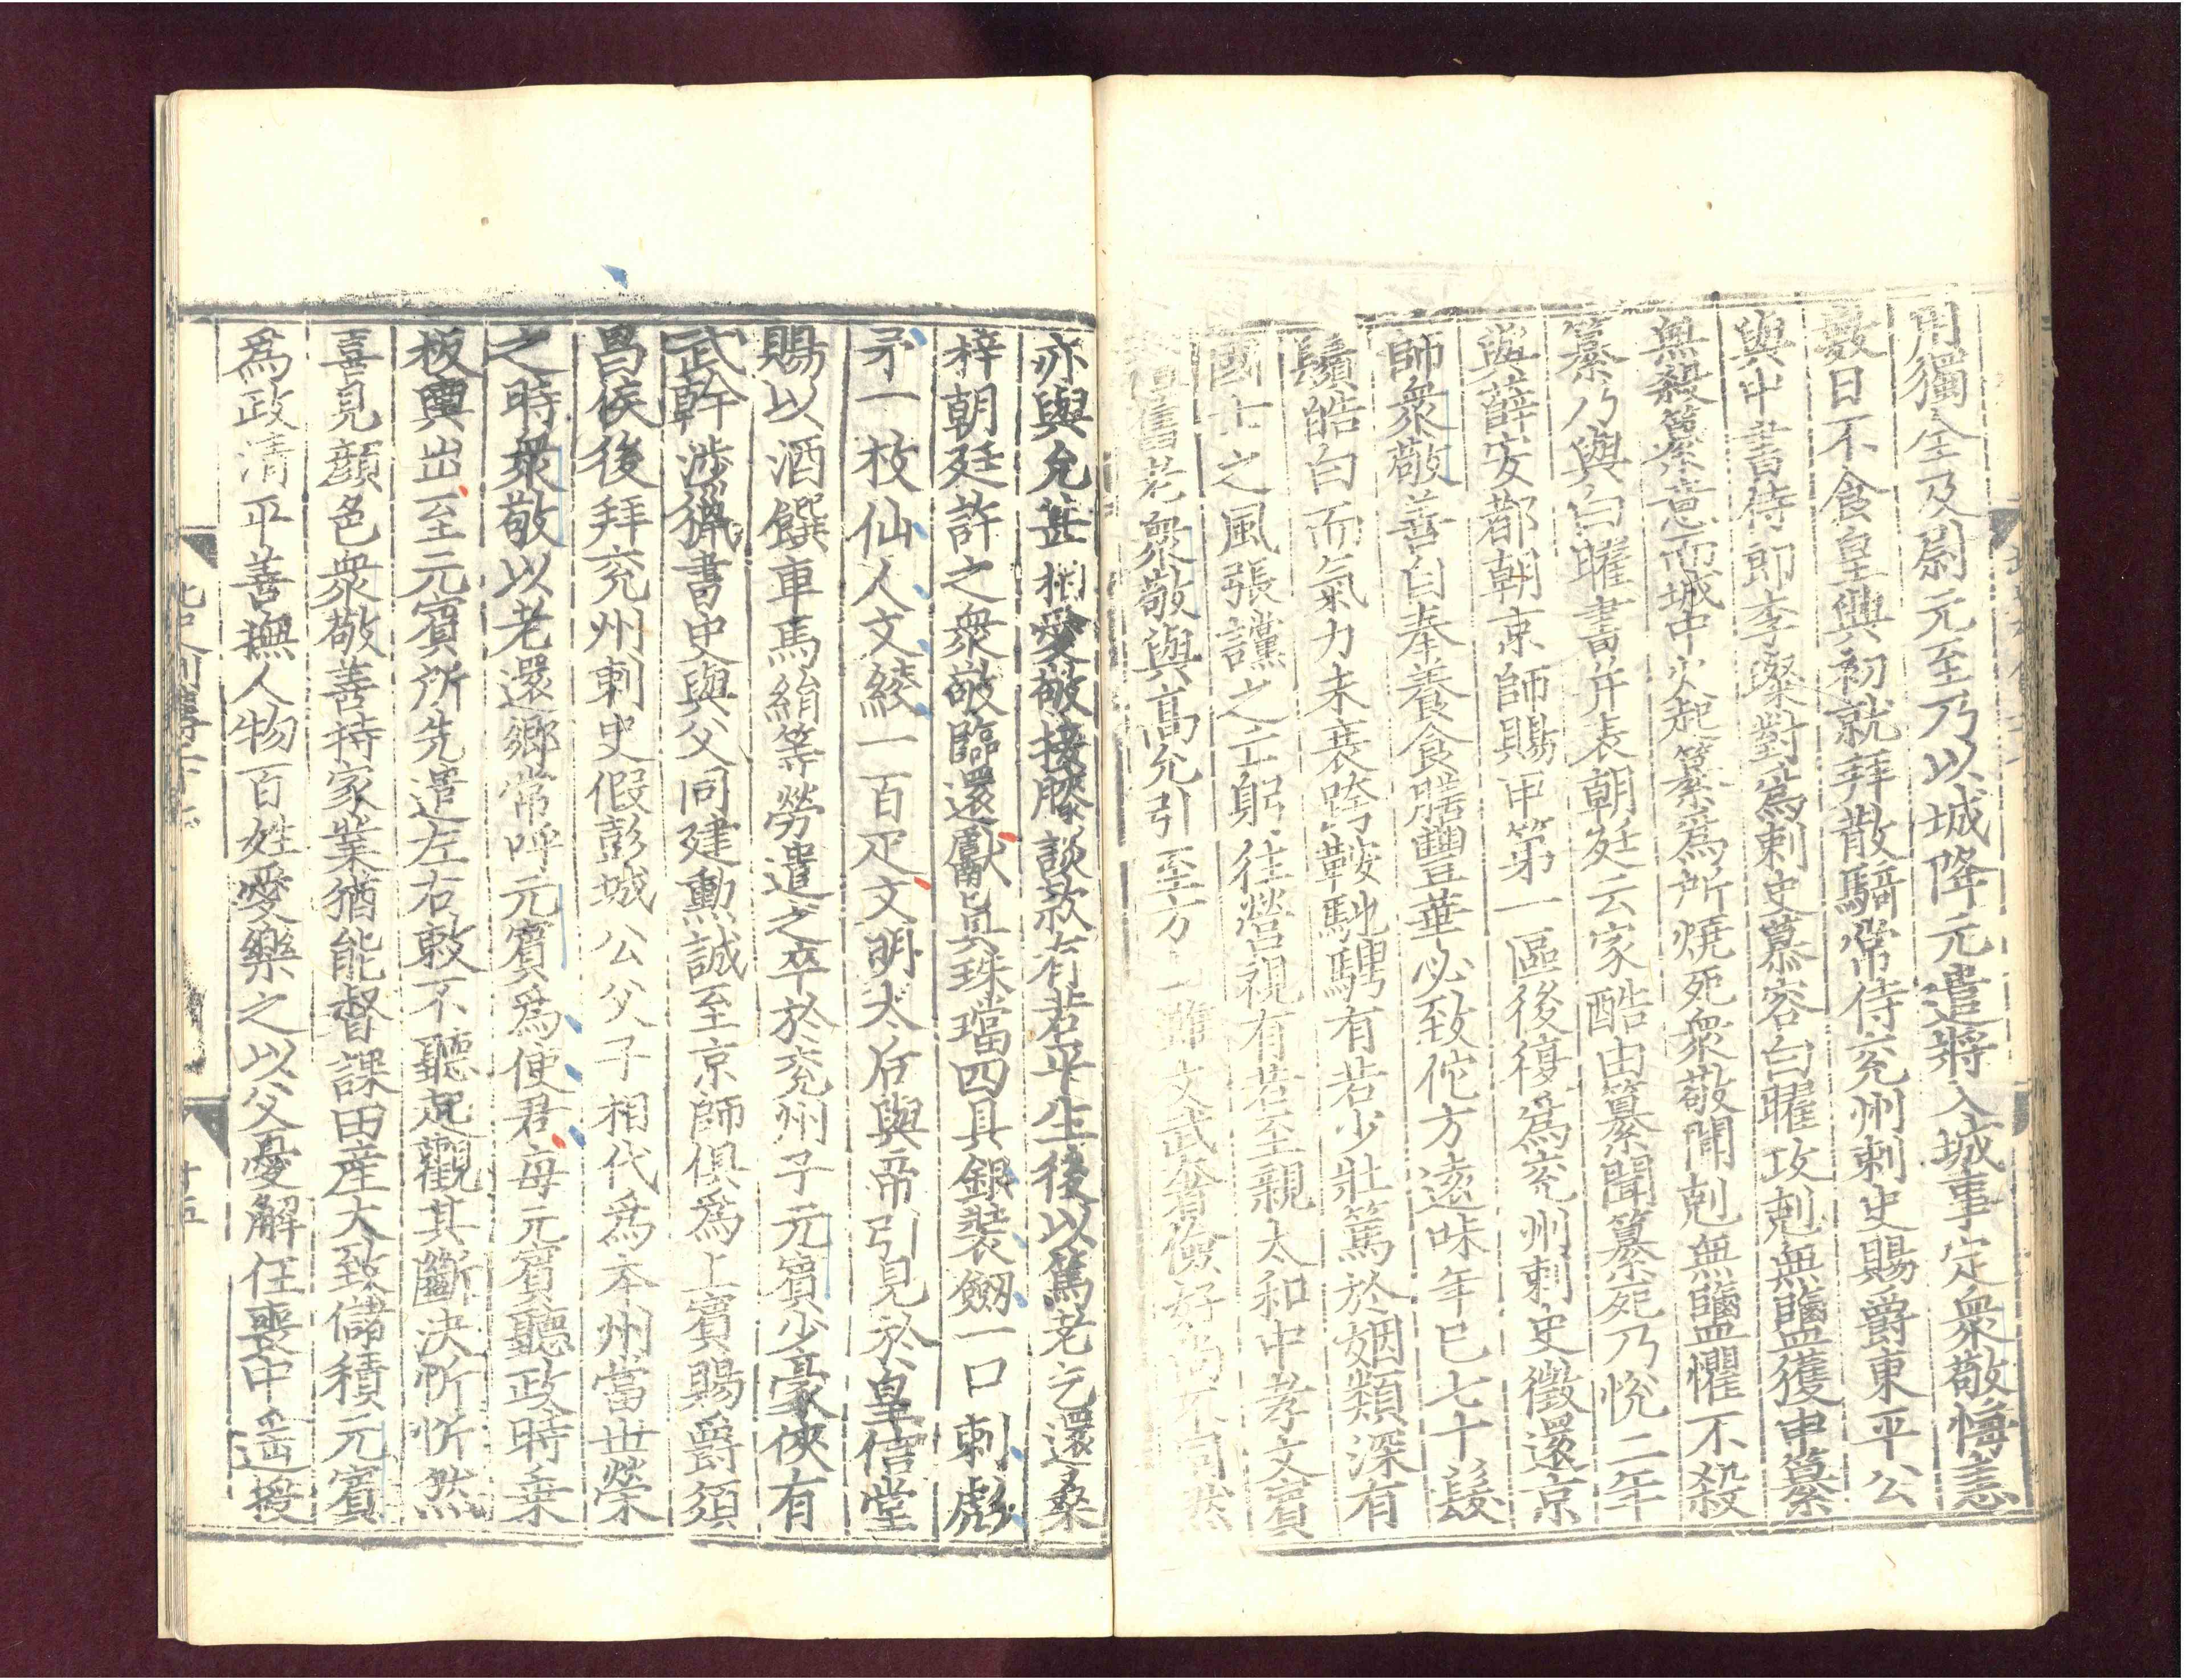 用獨全及尉元至乃以城降元遣將入城事定衆敬悔恚
數日不食皇興初就拜散騎常侍兖州刺史賜爵東平公
與中書侍郎李璨對爲刺史慕容白曜攻剋無鹽獲申纂
無殺纂意而城中火起纂爲所燒死衆敬聞剋無鹽懼不殺
纂乃與白曜書并表朝廷云家酷由纂聞纂死乃悅二年
與薛安都朝京師賜甲第一區後復爲兖州刺史徵還京
師衆敬善自奉養食膳豐華必致他方遠味年巳七十鬚
鬢皓白而氣力未衰跨鞍馳騁有若少壯篤於姻類深有
國士之風張讜之亡躬往營視有若至親太和中孝文賓
舊老衆敬與高允引至方 雖文武奢儉好尚不同然
亦與允甚相愛敬接膝談款有若平生後以篤老乞還桑
梓朝廷許之衆敬臨還獻真珠璫四具銀裝劔一口刺彪
矛一枚仙人文綾一百疋文明太后與帝引見於皇信堂
賜以酒饌車馬絹等勞遣之卒於兖州子元賓少豪俠有
武幹涉獵書史與父同建勳誠至京師俱爲上賓賜爵須
昌侯後拜兖州刺史假彭城公父子相代爲本州當世榮
之時衆敬以老還鄉常呼元賓爲使君每元賓聽政時乗
板輿出至元賓所先遣左右敕不聽起觀其斷決忻忻然
喜見顏色衆敬善持家業猶能督課田産大致儲積元賓
爲政清平善撫人物百姓愛樂之以父憂解任喪中遥授
北史列傳二十七
十五